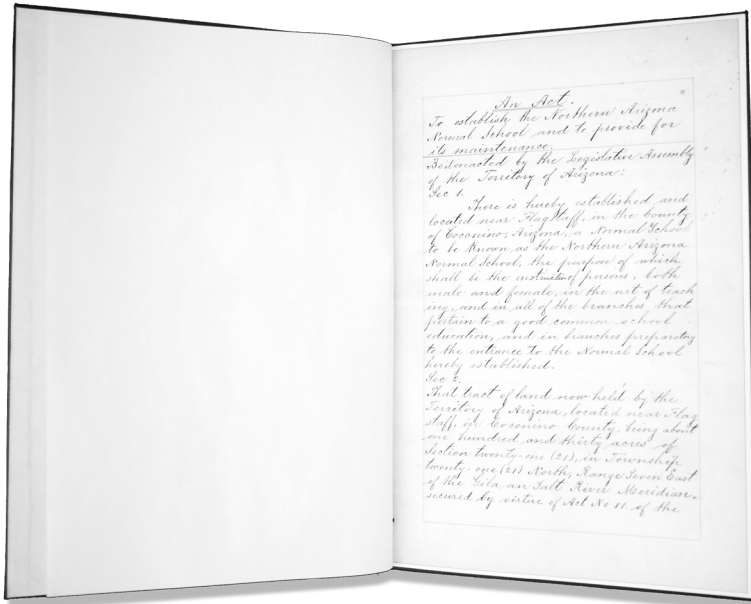 An Act.
To establish the Northern Arizona
Normal School and to provide for
its maintenance.
Be it enacted by the Legislative Assembly
of the Territory of Arizona:
Sec 1.
There is hereby established and
located near Flagstaff, in the County
of Coconino, Arizona, a Normal School
to be Known as the Northern Arizona
Normal School, the purpose of which
shall be the instruction of persons, both
male and female, in the art of teach
ing, and in all of the branches that
pertain to a good common school
education, and in branches preparatory
to the entrance to the Normal School
hereby established.
Sec 2.
That tract of land now held by the
Territory of Arizona, located near Flag
staff, in Coconino County, being about
one hundred and thirty acres of
Section twenty-one (21), in Township
twenty-one (21) North, Range Seven East
of the Gila an Salt River Meridian,
secured by virtue of Act No 81. of the